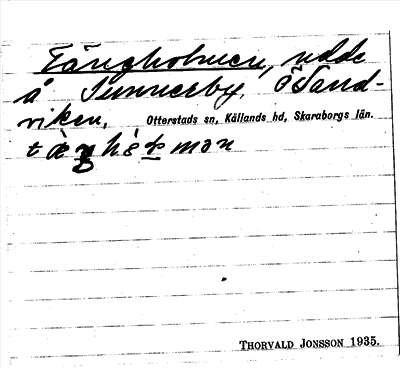 Tångholmen, udde
å Sunnerby, Ösand-
viken,
Otterstads sn, Kållands hd, Skaraborgs län.
THORVALD JONSSON 1935.